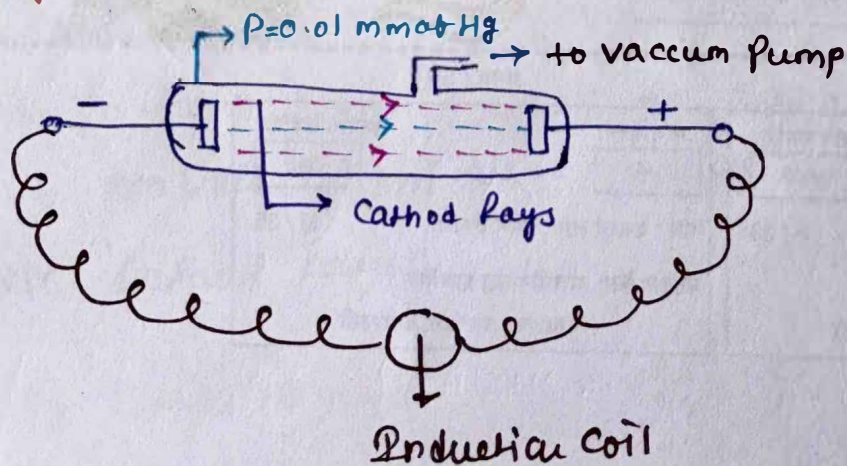 P=0.01 mm of Hg
→ to vaccum Pump
−
+
Cathod Rays
Induction Coil